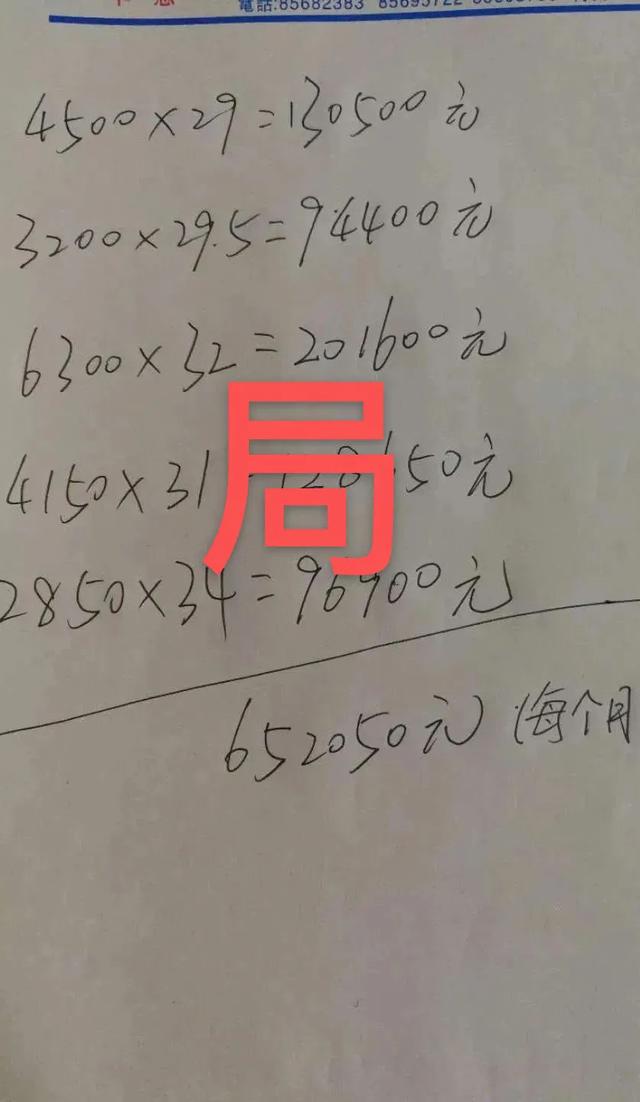 電話:85682383
4500×29=130500元
3200×29.5=94400元
6300×32=201600元
局
4150×31 50元
2850×34=96900元
652050元(每个月